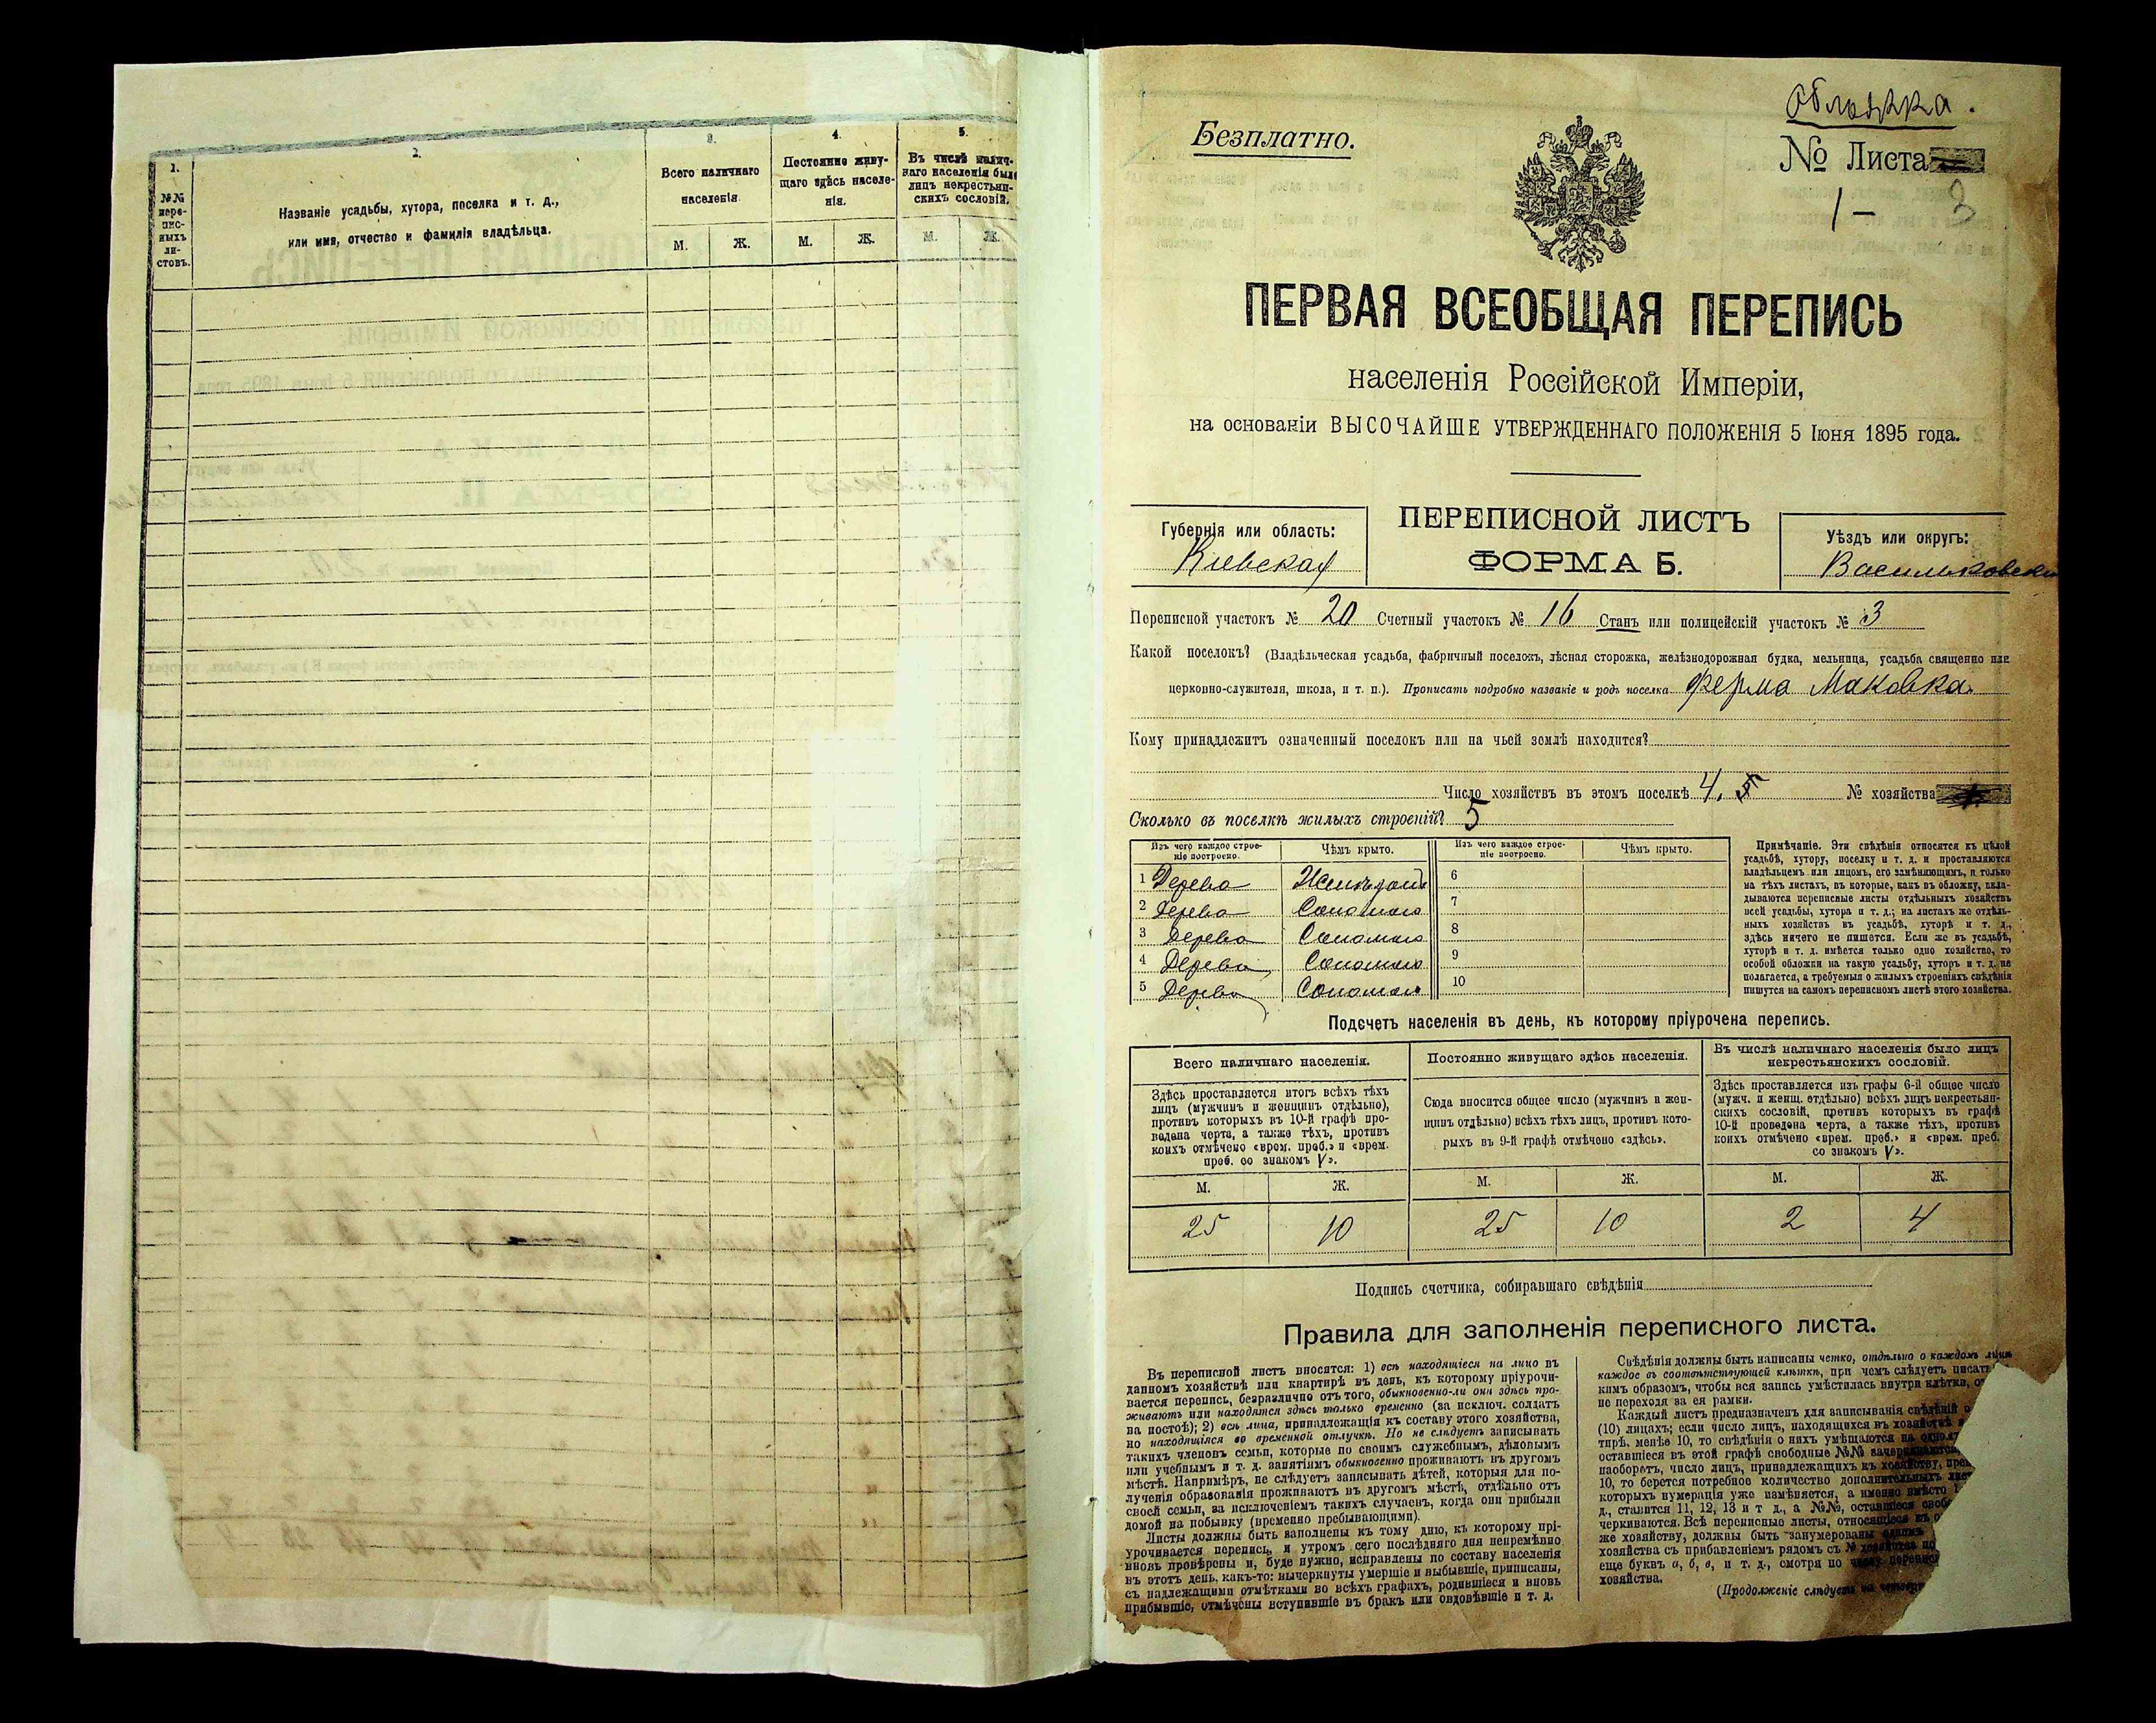 1.
№№ пере-
пис-
ныхъ
ли-
стовъ.
2.
Названіе усадьбы, хутора, поселка и т. д.,
или имя, отчество и фамилія владѣльца.
3.
Всего наличнаго
населенія.
М. Ж.
4.
Постоянно живу-
щаго здѣсь населе-
нія.
М. Ж.
5.
Въ числѣ налич-
наго населенія было
лицъ некрестьян-
скихъ сословій.
М. Ж.
Обложка.
Безплатно.
№ Листа
1 – 3
ПЕРВАЯ ВСЕОБЩАЯ ПЕРЕПИСЬ
населенія Россійской Имперіи,
на основаніи ВЫСОЧАЙШЕ УТВЕРЖДЕННАГО ПОЛОЖЕНІЯ 5 Іюня 1895 года.
Губернія или область:
Кіевская
ПЕРЕПИСНОЙ ЛИСТЪ
ФОРМА Б.
Уѣздъ или округъ:
Васильковскій
Переписной участокъ № 20 Счетный участокъ № 16 Станъ или полицейскій участокъ № 3
Какой поселокъ? (Владѣльческая усадьба, фабричный поселокъ, лѣсная сторожка, желѣзнодорожная будка, мельница, усадьба священно или
церковно-служителя, школа, и т. п.). Прописать подробно названіе и родъ поселка ферма Маковка.
Кому принадлежитъ означенный поселокъ или на чьей землѣ находится?
Число хозяйствъ въ этомъ поселкѣ 4. 5 № хозяйства
Сколько въ поселкѣ жилыхъ строеній? 5
Изъ чего каждое строе-
ніе построено. Чѣмъ крыто. Изъ чего каждое строе-
ніе построено. Чѣмъ крыто.
1 Дерева 6
2 Дерева Соломою 7
3 Дерева Соломою 8
4 Дерева Соломою 9
5 Дерева Соломою 10
Примѣчаніе. Эти свѣдѣнія относятся къ цѣлой
усадьбѣ, хутору, поселку и т. д. и проставляются
владѣльцемъ или лицомъ, его замѣняющимъ, и только
на тѣхъ листахъ, въ которые, какъ въ обложку, вкла-
дываются переписные листы отдѣльныхъ хозяйствъ
всей усадьбы, хутора и т. д.; на листахъ же отдѣль-
ныхъ хозяйствъ въ усадьбѣ, хуторѣ и т. д.,
здѣсь ничего не пишется. Если же въ усадьбѣ,
хуторѣ и т. д. имѣется только одно хозяйство, то
особой обложки на такую усадьбу, хуторъ и т. д. не
полагается, а требуемыя о жилыхъ строеніяхъ свѣдѣнія
пишутся на самомъ переписномъ листѣ этого хозяйства.
Подсчетъ населенія въ день, къ которому пріурочена перепись.
Всего наличнаго населенія.
Здѣсь проставляется итогъ всѣхъ тѣхъ
лицъ (мужчинъ и женщинъ отдѣльно),
противъ которыхъ въ 10-й графѣ про-
ведена черта, а также тѣхъ, противъ
коихъ отмѣчено «врем. преб.» и «врем.
преб. со знакомъ V».
М. Ж.
25 10
Постоянно живущаго здѣсь населенія.
Сюда вносится общее число (мужчинъ и жен-
щинъ отдѣльно) всѣхъ тѣхъ лицъ, противъ кото-
рыхъ въ 9-й графѣ отмѣчено «здѣсь».
М. Ж.
25 10
Въ числѣ наличнаго населенія было лицъ
некрестьянскихъ сословій.
Здѣсь проставляется изъ графы 6-й общее число
(мужч. и женщ. отдѣльно) всѣхъ лицъ некрестьян-
скихъ сословій, противъ которыхъ въ графѣ
10-й проведена черта, а также тѣхъ, противъ
коихъ отмѣчено «врем. преб.» и «врем. преб.
со знакомъ V».
М. Ж.
2 4
Подпись счетчика, собиравшаго свѣдѣнія
Правила для заполненія переписного листа.
Въ переписной листъ вносятся: 1) всѣ находящіеся на лицо въ
данномъ хозяйствѣ или квартирѣ въ день, къ которому пріурочи-
вается перепись, безразлично отъ того, обыкновенно-ли они здѣсь про-
живаютъ или находятся здѣсь только временно (за исключ. солдатъ
на постоѣ); 2) всѣ лица, принадлежащія къ составу этого хозяйства,
но находящіяся во временной отлучкѣ. Но не слѣдуетъ записывать
такихъ членовъ семьи, которые по своимъ служебнымъ, дѣловымъ
или учебнымъ и т. д. занятіямъ обыкновенно проживаютъ въ другомъ
мѣстѣ. Напримѣръ, не слѣдуетъ записывать дѣтей, которыя для по-
лученія образованія проживаютъ въ другомъ мѣстѣ, отдѣльно отъ
своей семьи, за исключеніемъ такихъ случаевъ, когда они прибыли
домой на побывку (временно пребывающими).
Листы должны быть заполнены къ тому дню, къ которому прі-
урочивается перепись, и утромъ сего послѣдняго дня непремѣнно
вновь провѣрены и, буде нужно, исправлены по составу населенія
въ этотъ день, какъ-то: вычеркнуты умершіе и выбывшіе, приписаны,
съ надлежащими отмѣтками во всѣхъ графахъ, родившіеся и вновь
прибывшіе, отмѣчены вступившіе въ бракъ или овдовѣвшіе и т. д.
Свѣдѣнія должны быть написаны четко, отдѣльно о каждомъ лицѣ
каждое въ соотвѣтствующей клѣткѣ, при чемъ слѣдуетъ писать
кимъ образомъ, чтобы вся запись умѣстилась внутри клѣтки,
не переходя за ея рамки.
Каждый листъ предназначенъ для записыванія свѣдѣній о
(10) лицахъ; если число лицъ, находящихся въ хозяйствѣ
тирѣ, менѣе 10, то свѣдѣнія о нихъ умѣщаются на
оставшіеся въ этой графѣ свободные №№ зачеркиваются,
наоборотъ, число лицъ, принадлежащихъ къ хозяйству,
10, то берется потребное количество дополнительныхъ
которыхъ нумерація уже измѣняется, а именно вмѣсто
д., ставится 11, 12, 13 и т д., а №№, оставшіеся
черкиваются. Всѣ переписные листы, относящіеся къ
же хозяйству, должны быть занумерованы
хозяйства съ прибавленіемъ рядомъ съ № хозяйства
еще буквъ а, б, в, и т. д., смотря по числу
хозяйства.
(Продолженіе слѣдуетъ на